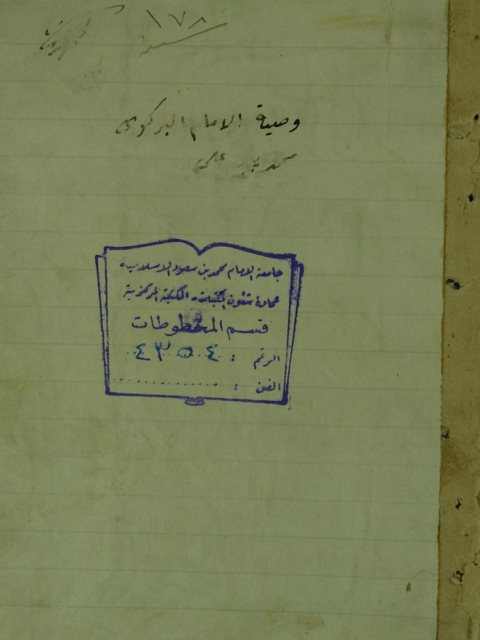 ١٧٨
وصية الامام البركوى
محمد بير على
جامعة الامام محمد بن سعود الاسلامية
عمادة شئون المكتبات - المكتبة المركزية
قسم المخطوطات
الرقم :
الفن :